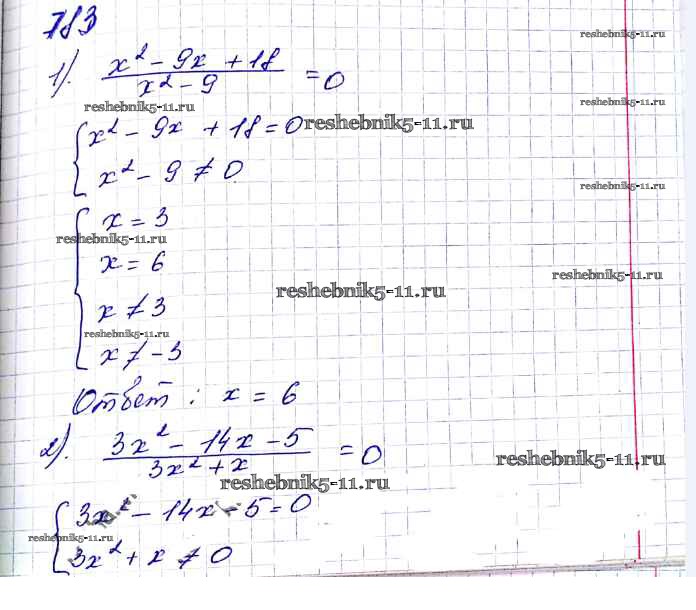 783
reshebnik5-11.ru
1). x² - 9x + 18 / x² - 9 = 0
reshebnik5-11.ru
reshebnik5-11.ru
{ x² - 9x + 18 = 0
reshebnik5-11.ru
x² - 9 ≠ 0
reshebnik5-11.ru
{ x = 3
reshebnik5-11.ru
x = 6
reshebnik5-11.ru
reshebnik5-11.ru
x ≠ 3
reshebnik5-11.ru
x ≠ -3
Ответ : x = 6
2). 3x² - 14x - 5 / 3x² + x = 0
reshebnik5-11.ru
reshebnik5-11.ru
{ 3x² - 14x - 5 = 0
reshebnik5-11.ru
3x² + x ≠ 0